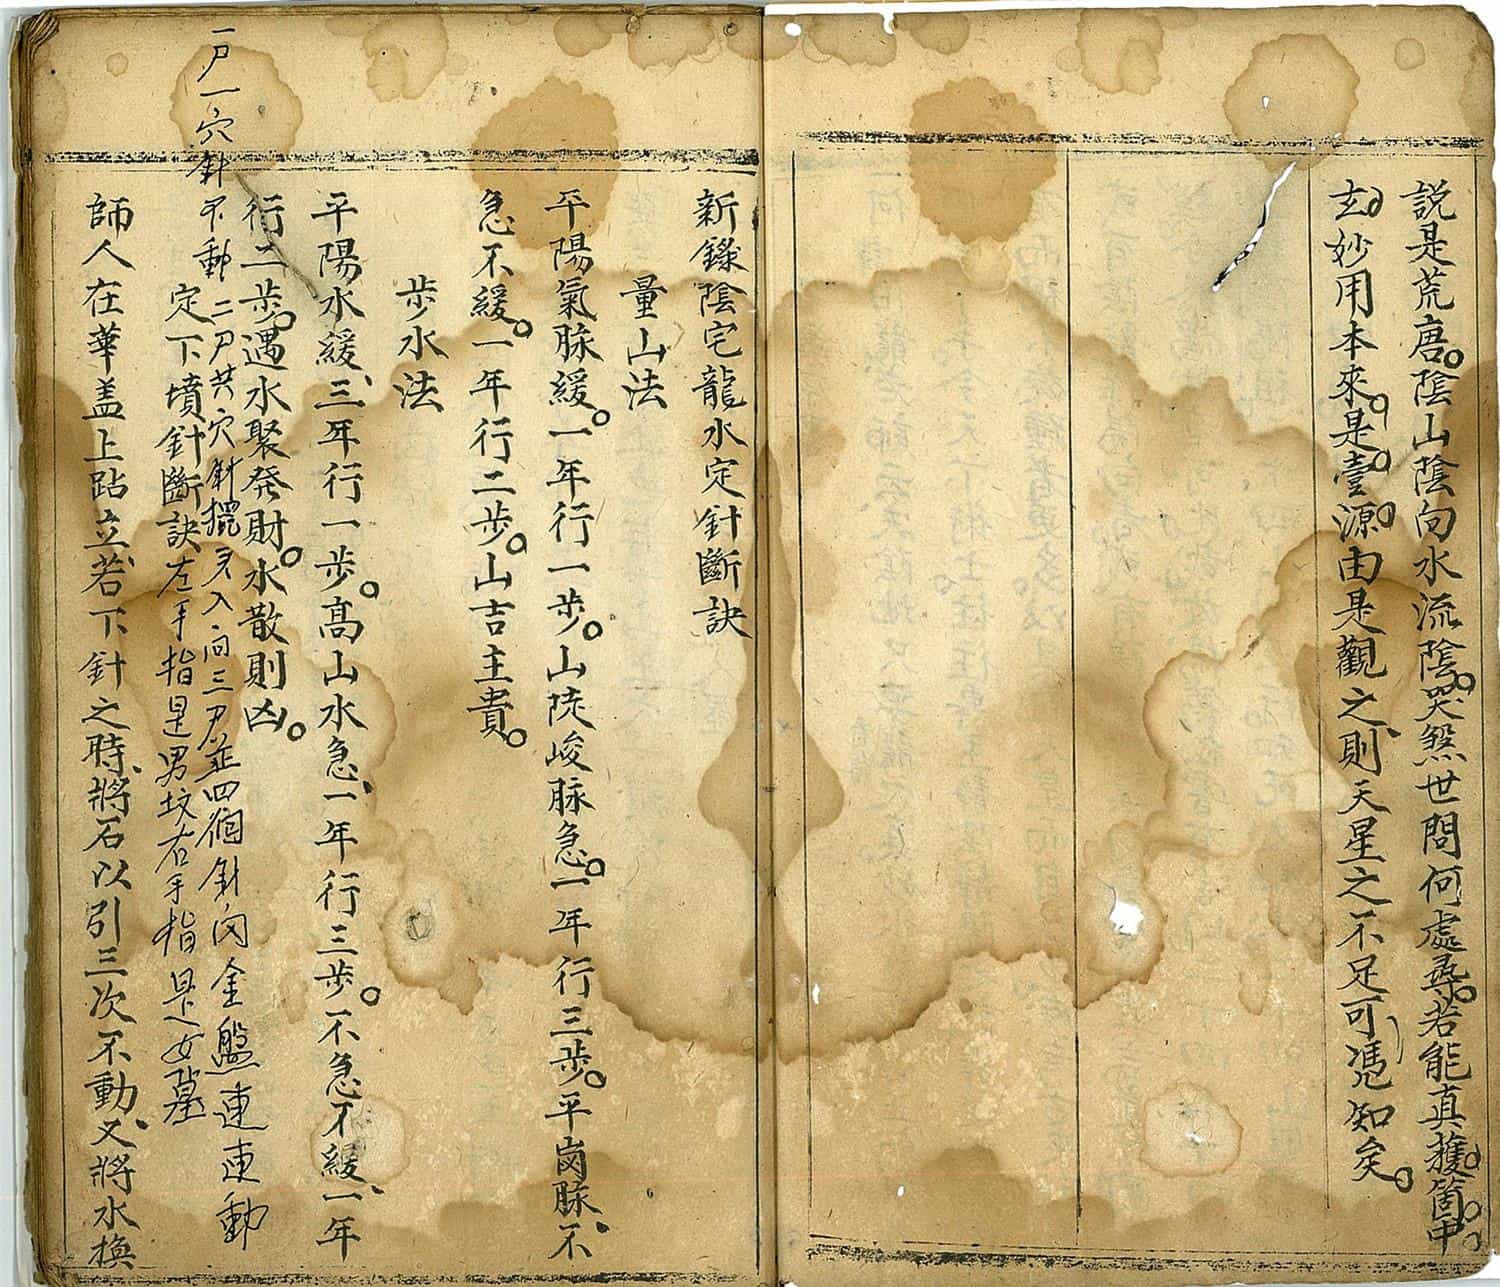 説是荒唐。陰山陰向水流陰。哭煞世問何處尋。若能真獲箇中
玄妙用本來。是壹源。由是觀之、則天星之不足可馮知矣。
新錄陰宅龍水定針斷訣
量山法
平陽氣脉緩。一年行一步。山陡峻脉急。一年行三步。平崗脉、不
急不緩。一年行二步。山吉主貴。
步水法
平陽水緩、三年行一步。高山水急、一年行三步。不急不緩、一年
行二步。遇水聚発財。水散則凶。
一尸一穴針不動二尸共穴針擺
入向三尸並四個針
金盤連連動
定下墳針斷訣左手指是男坟右手指是女墓
師人在華盖上跕立、若下針之時、將石以引三次不動、又將水換